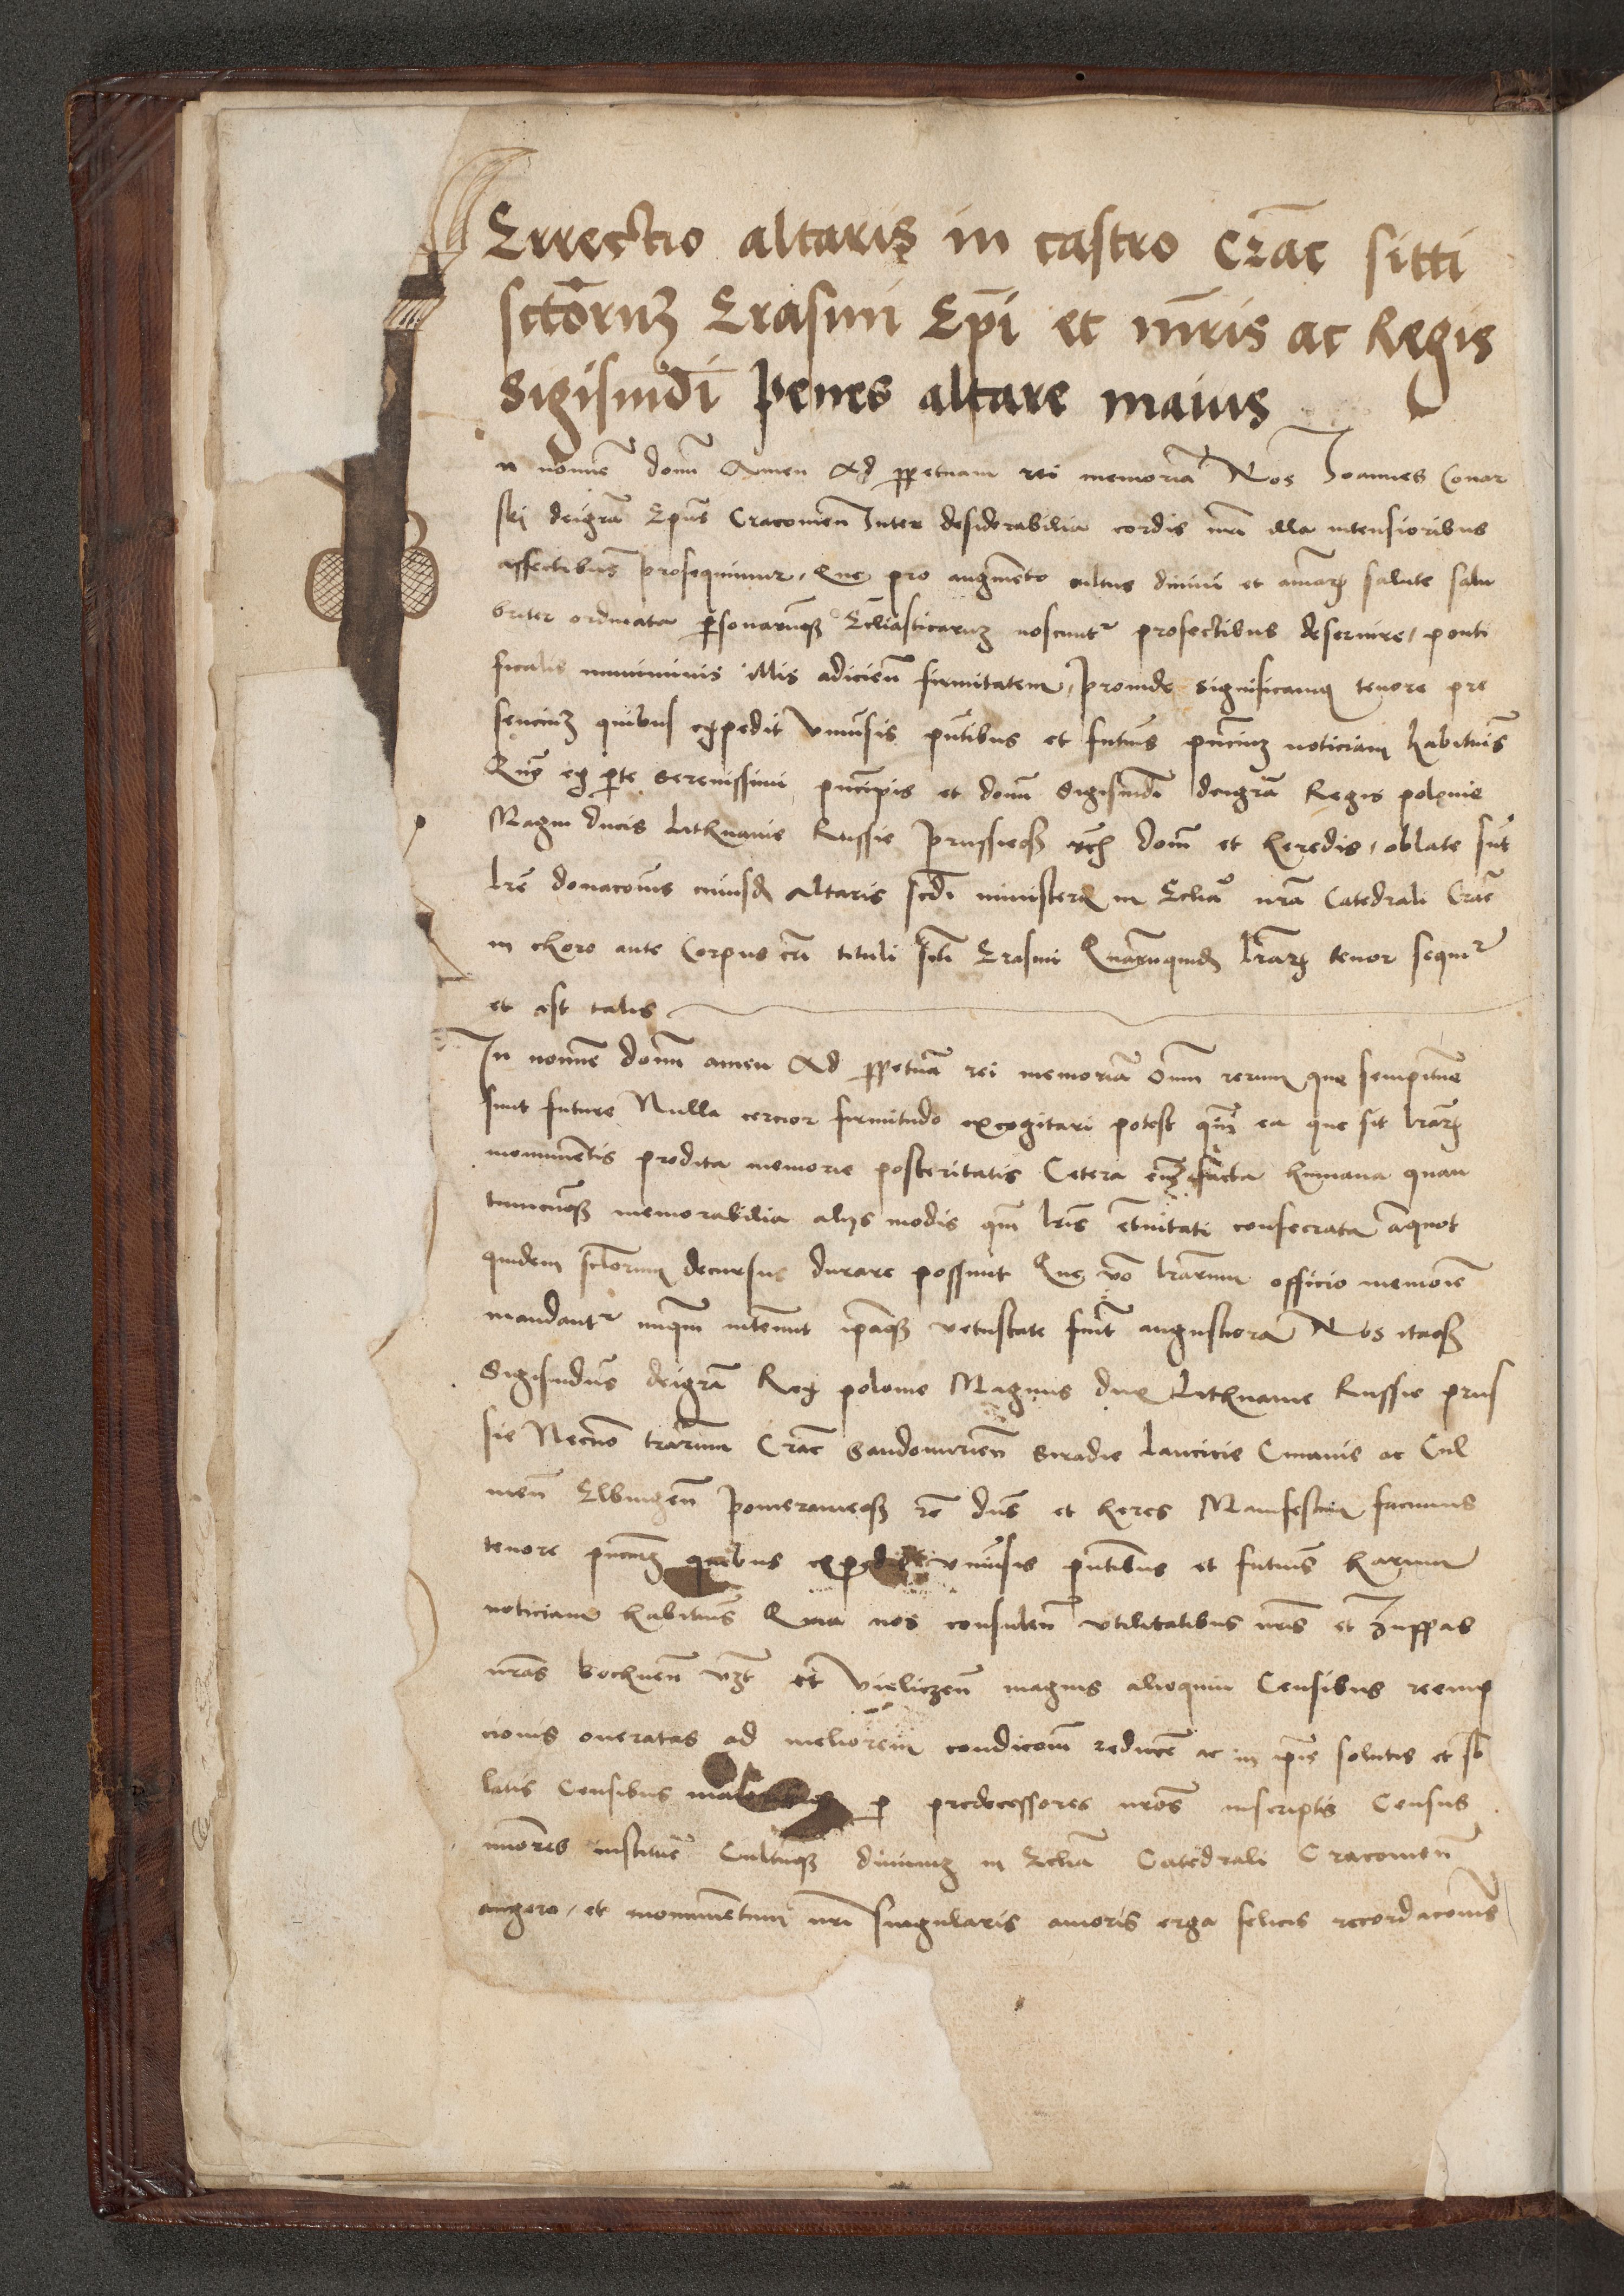 Errectio altaris in castro Crac̄ sitti
sctōruꝫ Erasmi Ep̄i et m̄ris ac Regis
Sigismūdi penes altare maius
n nomīe domī Amen Ad ꝑpetuam rei memoriā Nos Joannes Conar
ski deigr̄a Ep̄us Cracouien̄ Inter desiderabilia cordis nr̄i illa intensioribus
affectibus prosequimur, Que pro augmento cultus diuini et aīarꝫ salute salu
briter ordinata ꝑsonarūqꝫ Ecliasticaruꝫ noscuntr̄ profectibus deseruire, ponti
ficalis muniminis illis adicien̄ firmitatem, proinde significamꝰ tenore pre
senciuꝫ quibus expedit vniūsis pn̄tibus et futuris pn̄ciuꝫ noticiam habituris
Quō ex ꝑte serenissimi pn̄cipis et domī Sigismūdi deigrā Regis polonie
Magni ducis Lithuanie Russie prussieqꝫ domī et heredis, oblate sūt
lr̄e donacōnis cuiusdꝫ altaris in Eclīa nr̄a Catedrali Crac̄
in choro ante Corpus xp̄i tituli sctī Erasmi Quarumquidꝫ lr̄arꝫ tenor sequitr̄
et est talis
In nomīe domī amen Ad ꝑpetuā rei memoriā Oīm rerum que sempitn̄e
sunt future Nulla cercior firmitudo excogitari potest qm̄ ea que sit lr̄arꝫ
monumētis prodita memorie posteritatis Cetera enī facta humana quan
tumcūqꝫ memorabilia alijs modis qm̄ lr̄is et̄nitati consecrata aliquot
quidem sclorum decursus durare possunt Que vō lr̄arum officio memorie
mandantr̄ nūqm̄ intereunt ip̄aqꝫ vetustate fiunt augustiora Nos itaqꝫ
Sigismūdus deigrā Rex polonie Magnus dux Lithuanie Russie prus
sie Necnō trarum Crac̄ Sandomirien̄ Siradie Lancicie Cuiauie ac Cul
men̄ Elbingen̄ pomeranieqꝫ zc̄ dn̄s et heres Manifestum facimus
tenore pn̄ciuꝫ quibus expedit vniūsis pn̄tibus et futuris harum
noticiam habituris Quia nos consulen̄ vtilitatibus nr̄is et Zuppas
nr̄as bochnen̄ vꝫ et vieliczen̄ magnis alioquin Censibus reemp
cionis oneratas ad meliorem condicōnem reducē̄ ac in ip̄is solutis et sb
latis Censibus ꝑ predecessores nr̄os inscriptis Census
minores instituē Cultūqꝫ diuinuꝫ in Eclīa Catedrali Cracouien̄
augere, et monumentum nr̄i singularis amoris erga felicis recordacōnis